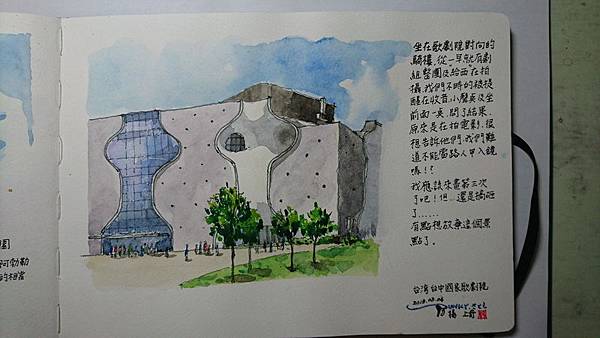 坐在歌劇院對向的
騎樓，從一早就有劇
組整團及給西在拍
攝，我們不時的被提
醒在收音，小聲莫及坐
前面一莫，問了結果，
原來是在拍電影，很
想告訴他們，我們難
道不能當路人甲入鏡
嗎！？
我應該來畫第三次
了吧！但…還是搞砸
了……
有點想放棄這個景
點了。
台灣台中國家歌劇院
2018.03.04
楊
園
阿勃勒
的相當